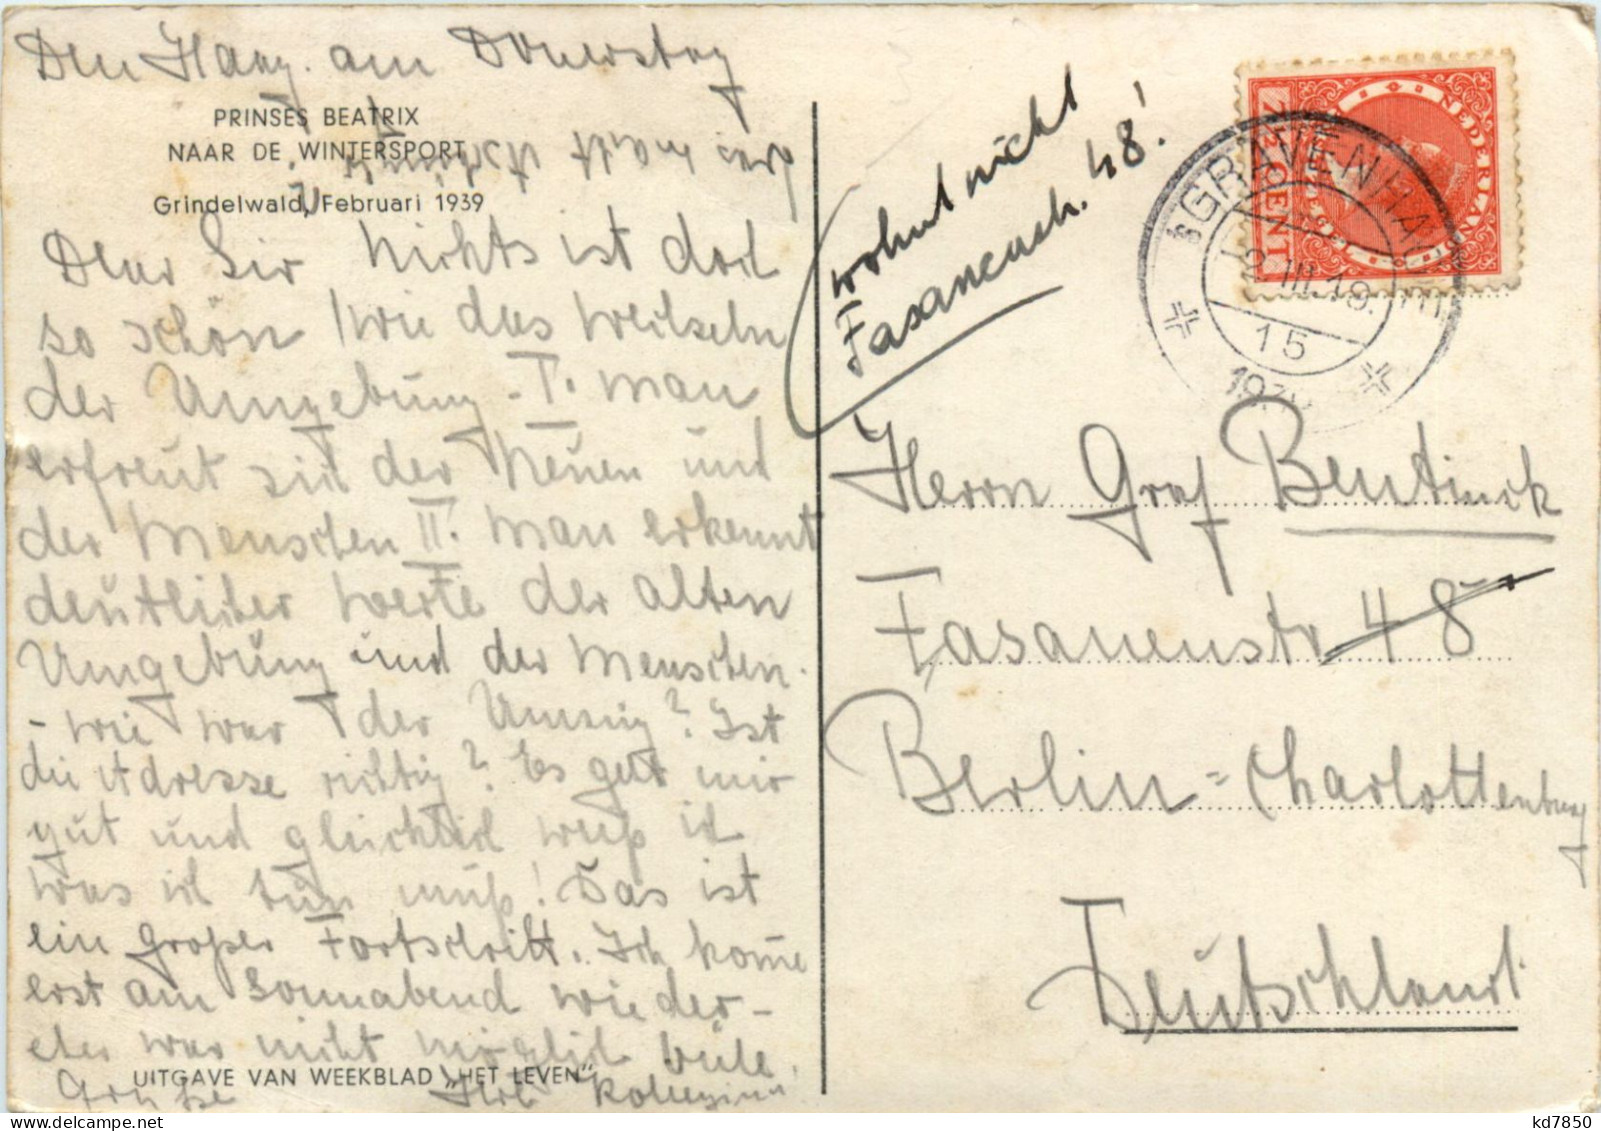 Den Haag. am Donerstag
PRINSES BEATRIX
NAAR DE WINTERSPORT
Grindelwald, Februari 1939
was macht
Dear Sir Nichts ist doch
so schön wie das Wechseln
der Umgebung - I. man
erfreut sich der Neuen und
der Menschen II. man erkennt
deutlicher Werte der alten
Umgebung und der Menschen.
- wie war der Umzug? Ist
die Adresse richtig? Es geht mir
gut und weiß ich
was ich tun muß! Das ist
ein großer Fortschritt. Ich kome
erst am Sonnabend wieder-
eher war nicht möglich
UITGAVE VAN WEEKBLAD „HET LEVEN"
Grüße
wohnt nicht
Fasanenstr. 48!
NEDERLAND
7½ CENT
'sGRAVENHAGE
2.III.18.
15
Herrn Graf Bentinck
Fasanenstr 48
Berlin=Charlottenburg
Deutschland
kd7850